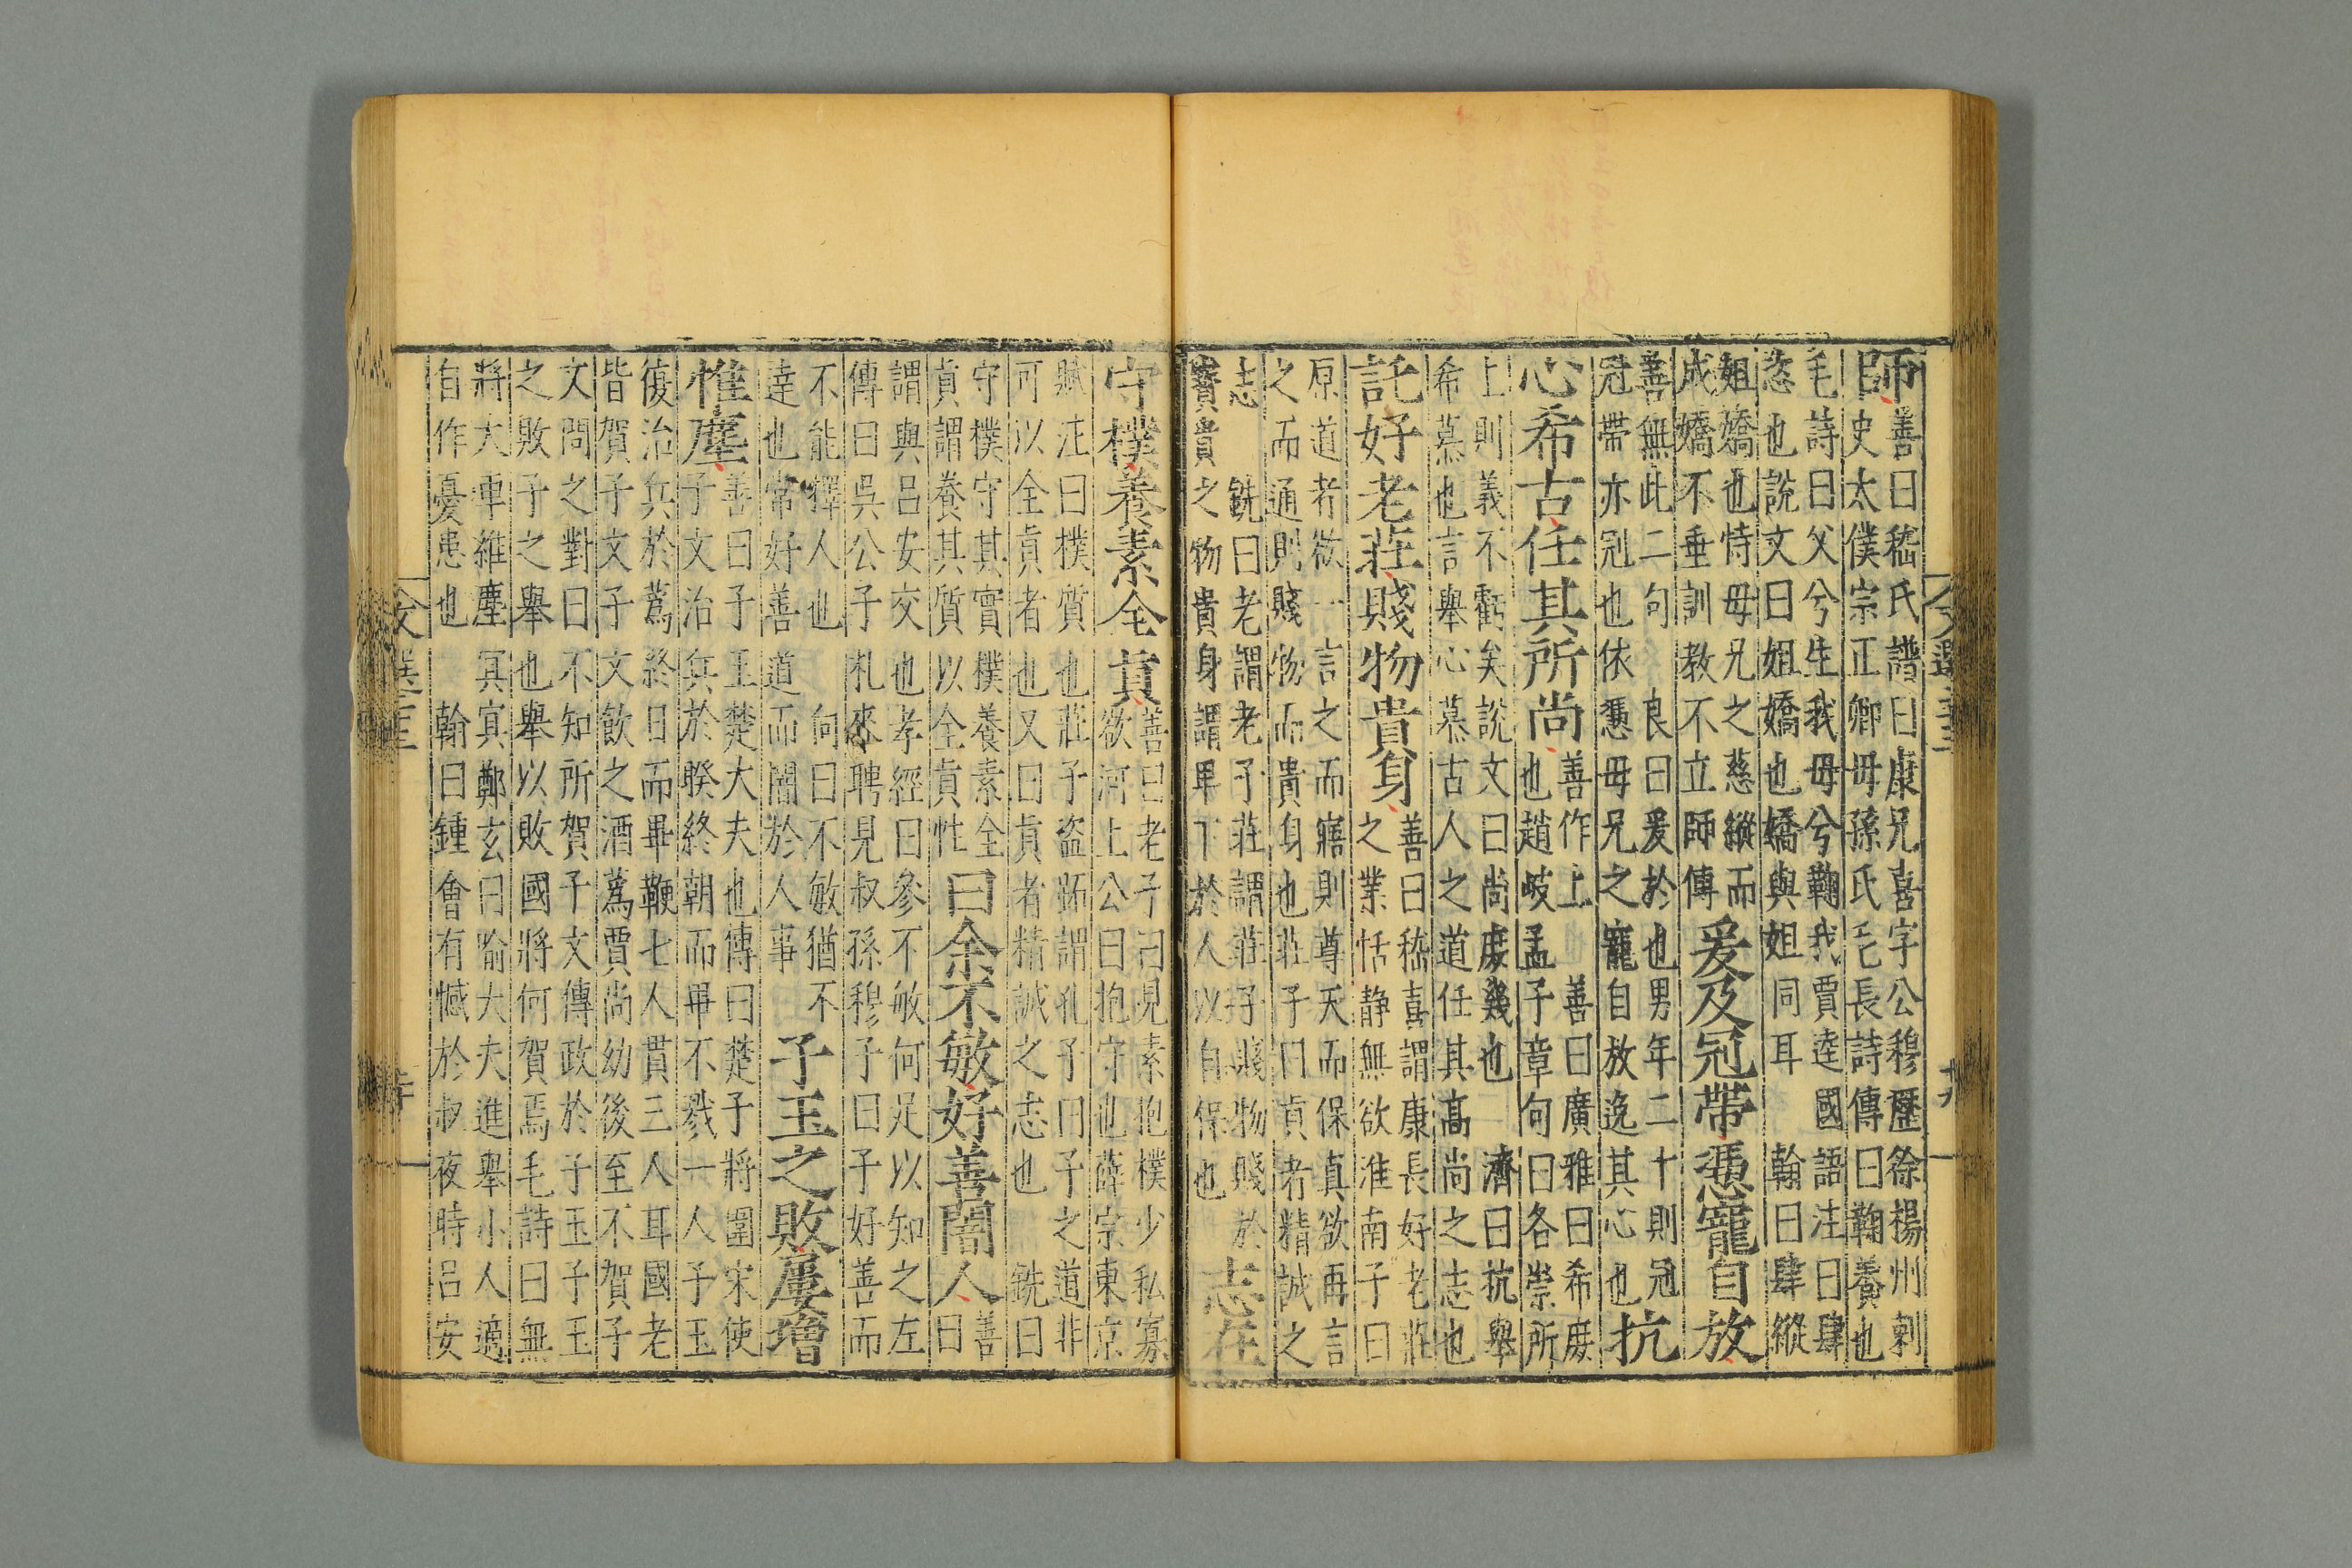 師善曰嵇氏譜曰康兄喜字公穆歷徐楊州刺
史太僕宗正卿母孫氏毛長詩傳曰鞠養也
毛詩曰父兮生我母兮鞠我賈逵國語注曰肆
恣也說文曰姐嬌也嬌與姐同耳 翰曰肆縱
姐嬌也恃母兄之慈縱而
成嬌不垂訓教不立師傅爰及冠帶憑寵自放
善無此二句 良曰爰於也男年二十則冠
冠帶亦冠也依憑母兄之寵自放逸其心也抗
心希古任其所尚善作上 善曰廣雅曰希庶
也趙岐孟子章句曰各崇所
上則義不虧矣說文曰尚庶幾也 濟曰抗舉
希慕也言舉心慕古人之道任其高尚之志也
託好老莊賤物貴身善曰嵇喜謂康長好老莊
之業恬静無欲淮南子曰
原道者欲一言之而寤則尊天而保真欲再言
之而通則賤物而貴身也莊子曰真者精誠之
志 銑曰老謂老子莊謂莊子賤物賤於
寶貴之物貴身謂卑下於人以自保也志在
守樸養素全真善曰老子曰見素抱樸少私寡
欲河上公曰抱守也薛宗東京
賦注曰樸質也莊子盜跖謂孔子曰子之道非
可以全真者也又曰真者精誠之志也 銑曰
守樸守其實樸養素全
真謂養其質以全真性曰余不敏好善闇人善
曰
謂與吕安交也孝經曰參不敏何足以知之左
傳曰吳公子札來聘見叔孫穆子曰子好善而
不能擇人也 向曰不敏猶不
達也常好善道而闇於人事子玉之敗屢增
惟塵善曰子玉楚大夫也傳曰楚子將圍宋使
子文治兵於睽終朝而畢不戮一人子玉
復治兵於蒍終日而畢鞭七人貫三人耳國老
皆賀子文子文飲之酒蒍賈尚幼後至不賀子
文問之對曰不知所賀子文傳政於子玉子玉
之敗子之舉也舉以敗國將何賀焉毛詩曰無
將大車維塵冥冥鄭玄曰喻大夫進舉小人適
自作憂患也 翰曰鍾會有憾於叔夜時吕安